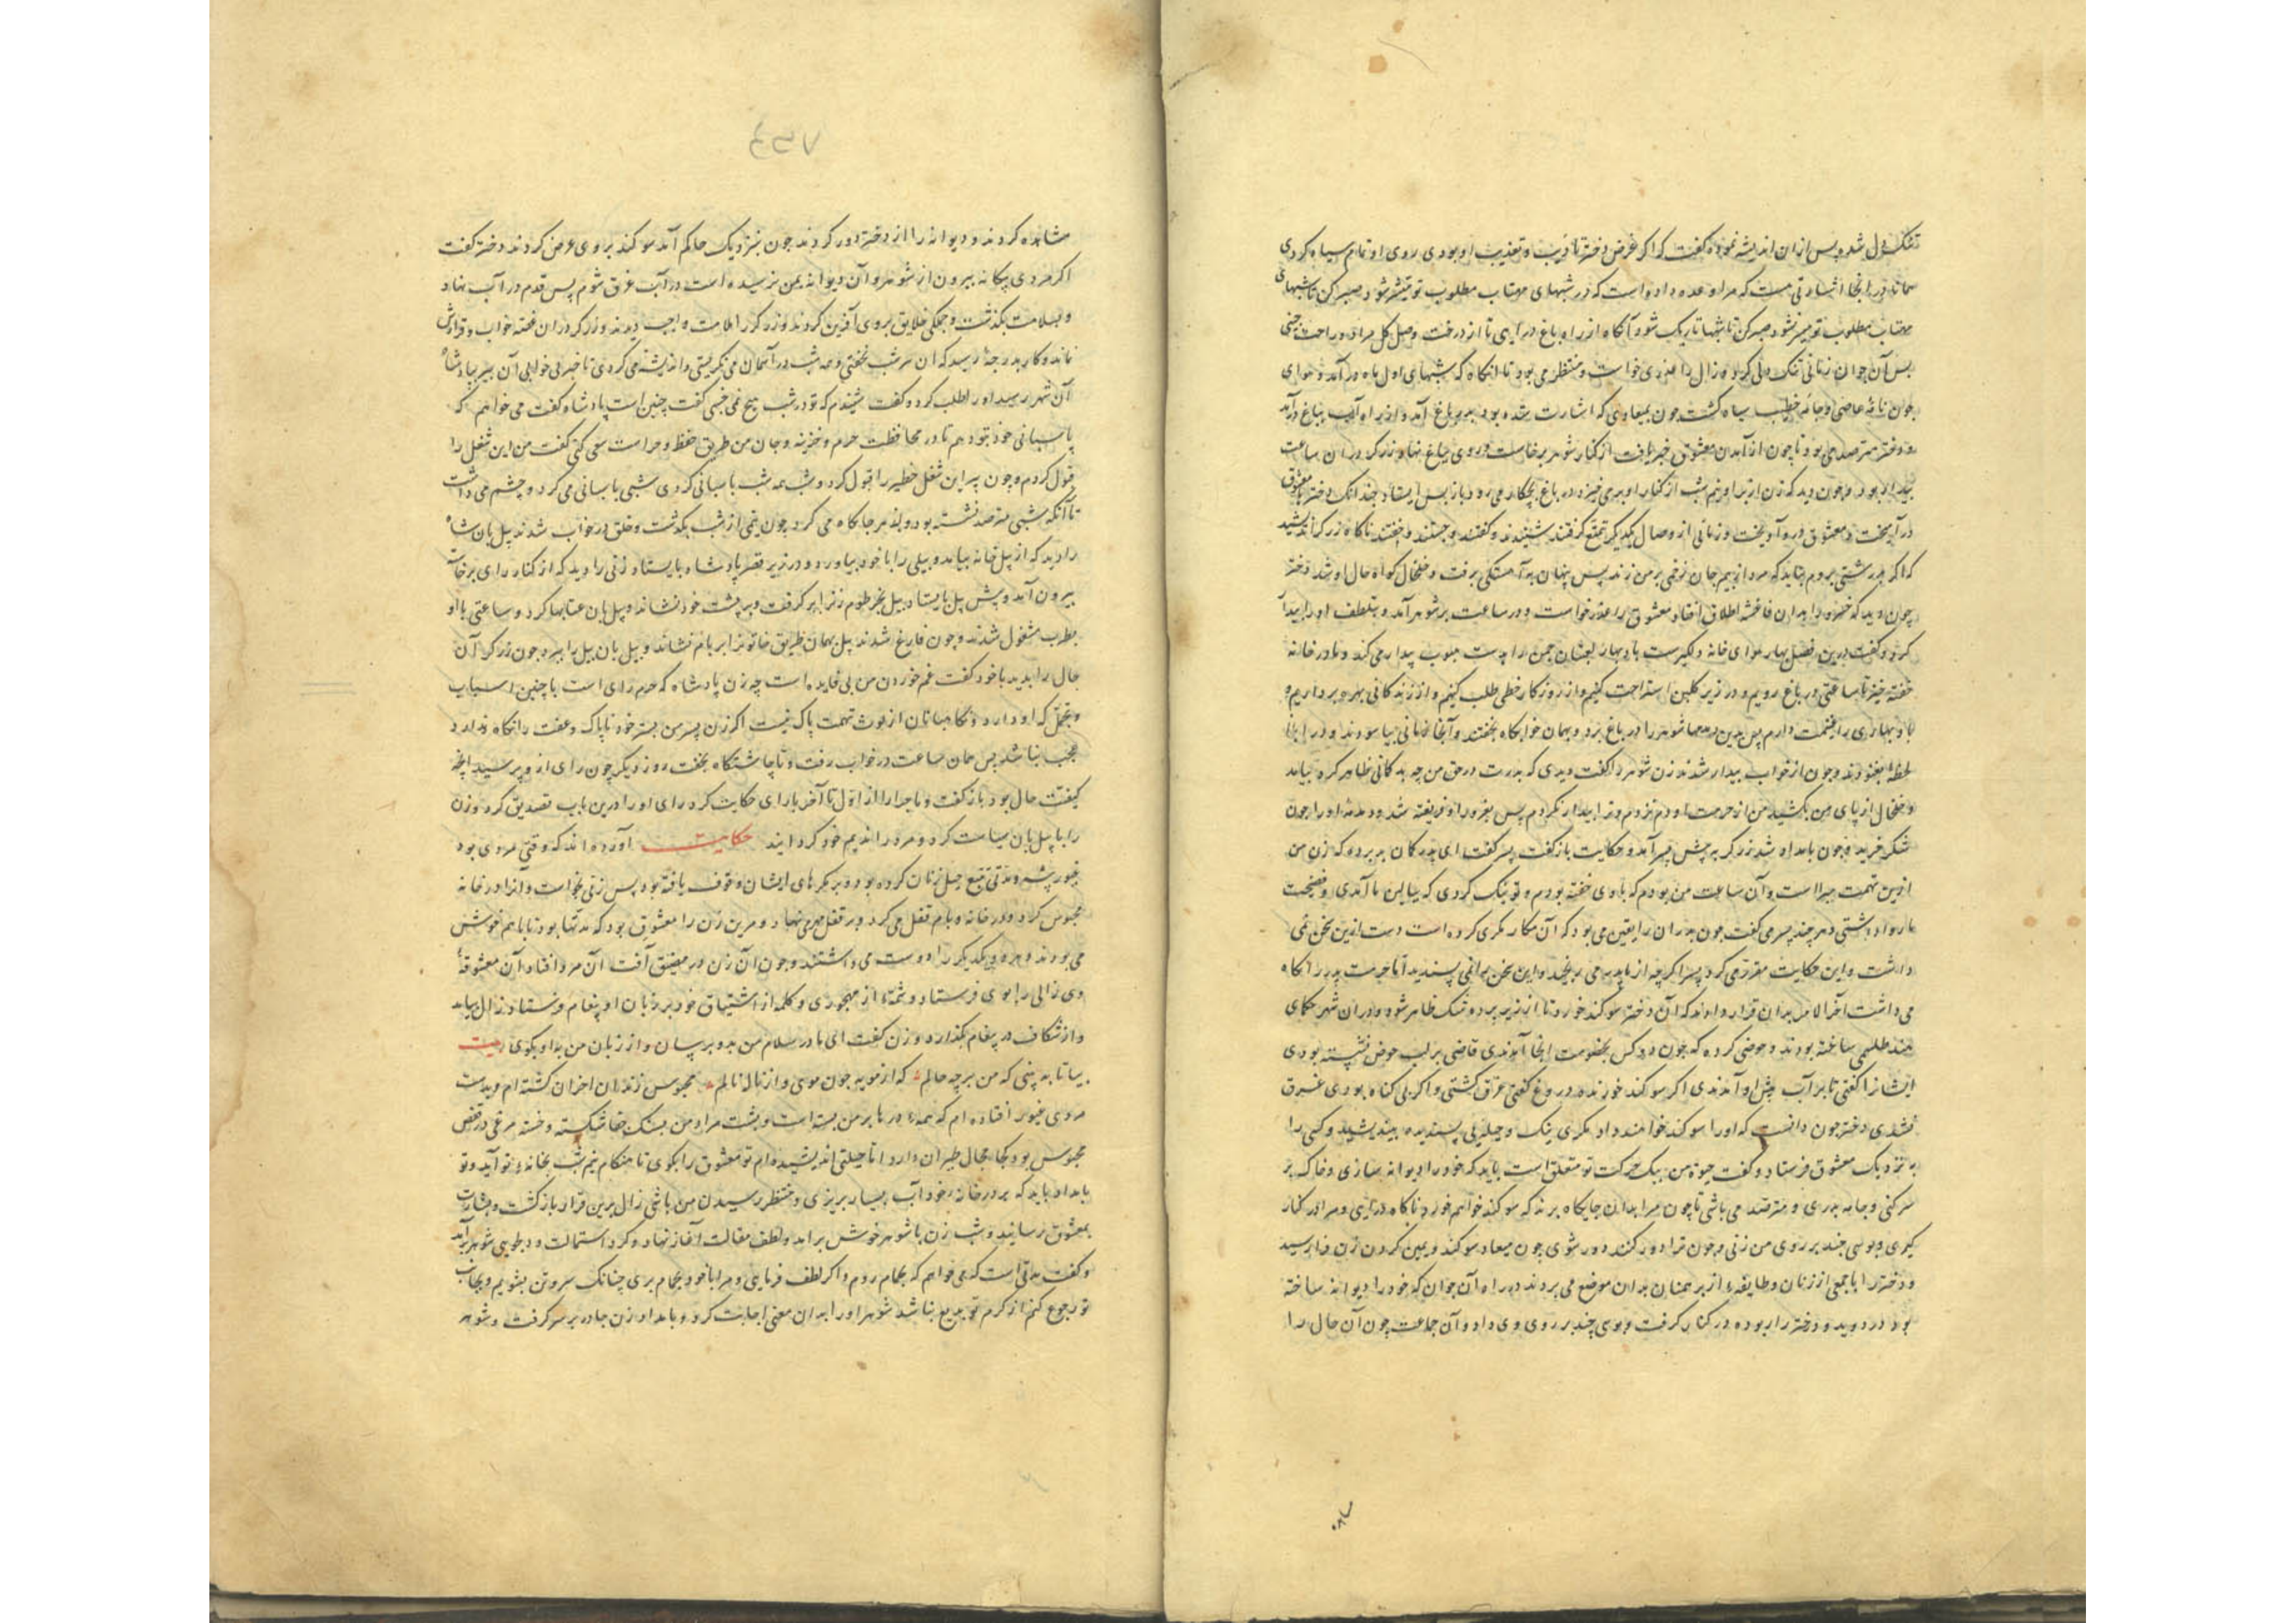 تنک دل شد و پس از ان اندیشه نمود و کفت که اکر غرض دختر تادیب و تعذیب او بودی روی او تمام سیاه کردی
همانا در انجا اشارتی است که مرا وعده داده است که در شبهای مهتاب مطلوب تو میسر نشود صبر کن تا شبهای
مهتاب مطلوب تو میسر نشود صبر کن تا شبها تاریک شود و آنکاه از راه باغ در آیی تا از درخت وصل کل مراد و راحت چنی
پس آن جوان زمانی تنک دلی کرد و زال را عذری خواست و منتظر می بود تا انکاه که شبهای اول ماه در آمد و هوای
چون نامه عاصی و جامه خطیب سیاه کشت چون بمیعادی که اشارت شده بود بدر باغ آمد و از راه آب بباغ درآمد
و دختر مترصد می بود تا چون از آمدن معشوق خبر یافت از کنار شوهر برخاست و روی بباغ نهاد زرکر دران ساعت
بیدار بود و چون دید که زن از بر او نیم شب از کنار او برمی خیزد در باغ بچکار می رود باز پس ایستاد چندانک دختر با معشوق
در آمیخت و معشوق در وی آویخت و زمانی از وصال یکدیکر تمتع کرفتند شنیدند و کفتند و جستند و خفتند ناکاه زرکر اندیشید
که اکر بدرشتی بروم نباید که مرد از بیم جان زخمی بر من زند پس پنهان به آهستکی برفت و خلخال که آه حال او شد دختر
چون دید که خسر را بدان فاحشه اطلاق افتاد معشوق را عذر خواست و در ساعت بر شوهر آمد و بتلطف او را بیدار
کرد و کفت درین فصل بهار هوای خانه دلکیرست باد بهار بعشان چمن را پوست جلوب پیدا می کند و ما در خانه
خفته خیز تا ساعتی در باغ رویم و در زیر کلبن استراحت کنیم و از روزکار حظی طلب کنیم و از زندکانی بهره برداریم و
باد بهاری را غنیمت داریم پس بدین دمدمها شوهر را در باغ برد و بهمان خوابکاه بخفتند و آنجا زمانی بیاسودند و در انجا
لحظه بغنودند و چون از خواب بیدار شدند زن شوهر را کفت دیدی که پدرت در حق من چه بدکمانی ظاهر کرد بیامد
و خلخال از پای من بکشید من از حرمت او دم نزدم و ترا بیدار نکردم پس بغرور او فریفته شد و دمدمه او را چون
شکر خرید و چون بامداد شد زرکر به پیش پسر آمد و حکایت بازکفت پسر کفت ای پدر کمان بد برده که زن من
ازین تهمت مبرا است و آن ساعت من بودم که با وی خفته بودم و تو نیک کردی که ببالین ما آمدی و فضیحت
ما روا داشتی و هر چند پسر می کفت چون پدر ان را یقین می بود که آن مکار مکری کرده است دست ازین سخن نمی
داشت و این حکایت مقرر می کرد پسر اکرچه از پدر می رنجید و این سخن برو نمی پسندید اما حرمت پدر را نکاه
می داشت آخر الامر بدان قرار دادند که آن دختر سوکند خورد تا از زیر پرده شک ظاهر شود و دران شهر حکمای
هند طلسمی ساخته بودند و حوضی کرده که چون دو کس بخصومت انجا آمدندی قاضی بر لب حوض نشسته بودی
ایشانرا کفتی تا بر آب پیش او آمدندی اکر سوکند خورنده دروغ کفتی غرق کشتی و اکر بی کناه بودی غرق
نشدی دختر چون دانست که او را سوکند خواهند داد مکری نیک و حیلتی پسندیده بیندیشید و کسی را
به نزدیک معشوق فرستاد و کفت حیوة من بیک حرکت تو متعلق است باید که خود را دیوانه سازی و خاک بر
سر کنی و جامه بدری و مترصد می باشی تا چون مرا بدان جایکاه برند که سوکند خواهم خورد ناکاه در آیی و مرا در کنار
کیری و بوسی چند بر روی من زنی و چون ترا دور کنند دور شوی چون میعاد سوکند و یمین کردن زن فراز رسید
و دختر را با جمعی از زنان و طایفهء از برهمنان بدان موضع می بردند در راه آن جوان که خود را دیوانه ساخته
بود در دوید و دختر را ربوده در کنار کرفت و بوسی چند بر روی وی داد و آن جماعت چون آن حال را
۷۵۵
مشاهده کردند و دیوانه را از دختر دور کردند چون بنزدیک حاکم آمد سوکند بر وی عرض کردند دختر کفت
اکر مردی بیکانه بیرون از شوهر و آن دیوانه بمن نرسیده است در آب غرق شوم پس قدم در آب نهاد
و بسلامت بکذشت و جملکی خلایق بر وی آفرین کردند و زرکر را ملامت واجب دیدند و زرکر دران غصه خواب و قرارش
نماند و کار بدرجهٔ رسید که ان سر شب نخفتی و همه شب در آسمان می نکریستی و اندیشه می کردی تا خبر بی خوابی آن پیر بپادشاه
آن شهر رسید او را طلب کرد و کفت شنیدم که تو در شب هیچ نمی خسبی کفت چنین است پادشاه کفت می خواهم که
پاسبانی خود بتو دهم تا در محافظت حرم و خزینه و جان من طریق حفظ و حراست سعی کنی کفت من این شغل را
قبول کردم و چون پیر این شغل خطیر را قبول کرد و شب همه شب پاسبانی کردی شبی پاسبانی می کرد و چشم می داشت
تا آنکه شبی مترصد نشسته بود و بهر جا نکاه می کرد چون نیمی از شب بکذشت و خلق در خواب شدند پیل بان شاه
را دید که از پیل خانه بیامد و پیلی را با خود بیاورد و در زیر قصر پادشاه بایستاد زنی را دید که از کنار رای برخاست
بیرون آمد و پیش پیل بایستاد پیل بخرطوم زن را برکرفت و بر پشت خود نشاند و پیل بان عتابها کرد و ساعتی با او
بطرب مشغول شدند و چون فارغ شدند پیل بهمان طریق خاتونرا بر بام نشاند و پیل بان پیل را ببرد چون زرکر آن
حال را بدید با خود کفت غم خوردن من بی فایده است چه زن پادشاه که حرم رای است با چنین اسباب
و تجمل که او دارد و نکاهبانان از لوث تهمت پاک نیست اکر زن پسر من بستر خود ناپاک و عفت را نکاه ندارد
عجب نباشد پس همان ساعت در خواب رفت و تا چاشتکاه بخفت روز دیکر چون رای از و پرسید انچه
کیفیت حال بود بازکفت و ماجرا را از اول تا آخر با رای حکایت کرد رای او را درین باب تصدیق کرد و زن
را با پیل بان سیاست کرد و مرد را ندیم خود کردانید حکایت آورده اند که وقتی مردی بود
غیور پیشه و مدتی تتبع حیل زنان کرده بود و بر مکرهای ایشان وقوف یافته بود پس زنی بخواست و آنرا در خانه
محبوس کرد و در خانه و بام قفل می کرد و بر قفل مهر می نهاد و مر ین زن را معشوقی بود که مدتها بود تا با هم خوش
می بودند و هر دو یکدیکر را دوست می داشتند و چون آن زن در مضیق آفت آن مرد افتاد آن معشوقهٔ
وی زالی را بوی فرستاد و شمهٔ از مهجوری و کلمه از اشتیاق خود بر زبان او پیغام فرستاد زال بیامد
و از شکاف در پیغام بکذارد و زن کفت ای مادر سلام من بدو برسان و از زبان من به او بکوی بیت
بیا تا به بینی که من بر چه حالم که از مویه چون موی و از ناله نالم محبوس زندان احزان کشته ام و بدست
مردی غیور افتاده ام که همه درها بر من بسته است و پشت مراد من بسنک جفا شکسته و خسته مرغی در قفص
محبوس بود کجا مجال طیران دارد اما حیلتی اندیشیده ام تو معشوق را بکوی تا هنکام نیم شب بخانهء تو آید و تو
بامداد باید که بر در خانه خود آب بسیار بریزی و منتظر رسیدن من باشی زال برین قرار بازکشت و بشارت
بمعشوق رسانید و شب زن با شوهر خوش برآمد و لطف مقالت آغاز نهاد و کرد استمالت و دلجویی شوهر برآمد
و کفت مدتی است که می خواهم که بحمام روم و اکر لطف فرمایی و مرا با خود بحمام بری چنانک سر و تن بشویم و بجانب
تو رجوع کنم از کرم تو بدیع نباشد شوهر او را بدان معنی اجابت کرد و بامداد زن چادر بر سر کرفت و شوهر